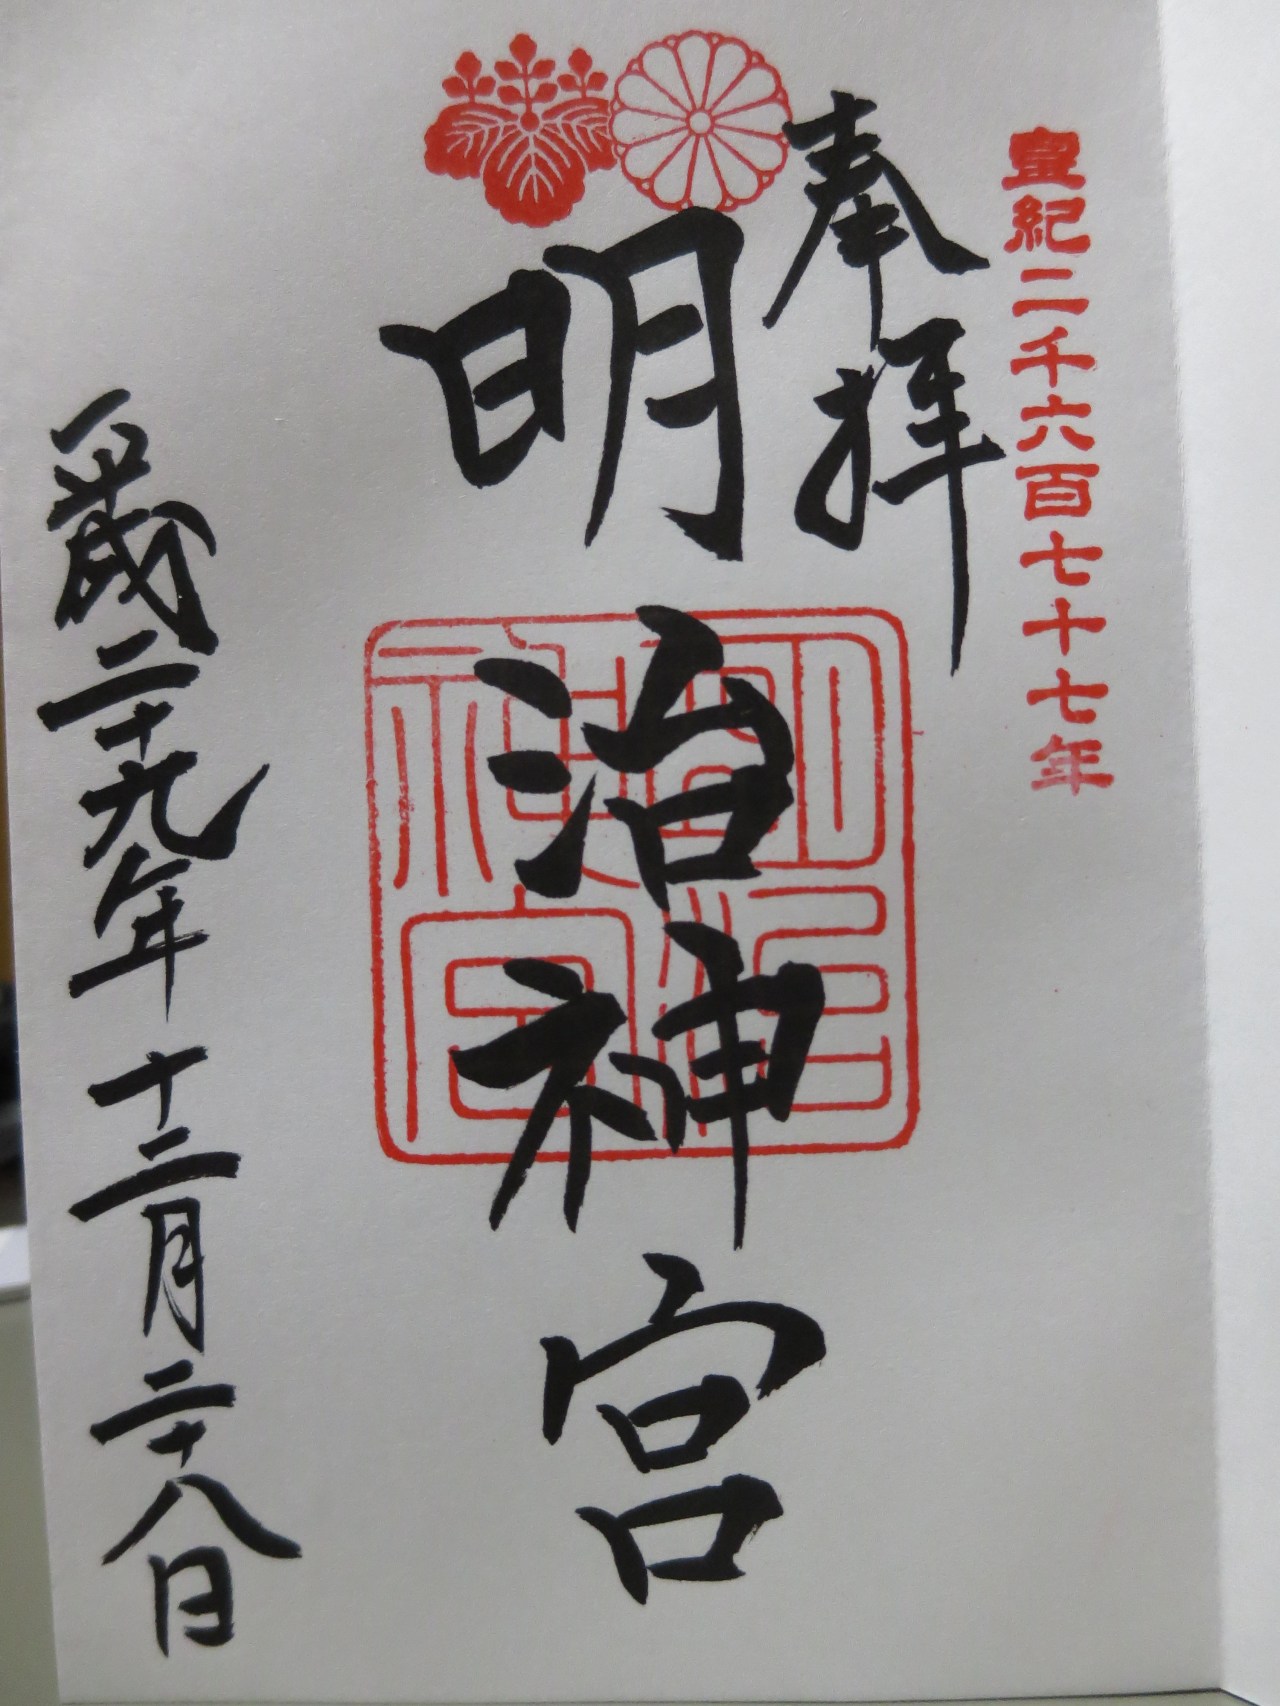 皇紀二千六百七十七年
奉拝
明治神宮
明治
神宮
平成二十九年十二月二十八日